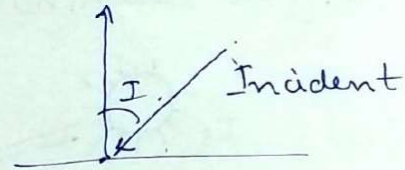 I
Incident